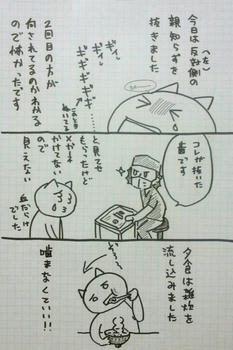 今日は反対側の
(左)
親知らずを
抜きました
ギィー
ギィ
ギギギギギ……
2回目の方が
何されてるのかわかる
ので怖かったです
コレが抜いた
歯です
と見せて
もらったけど
メガネ
かけてない
ので
見えない
血だらけ
でした
夕食は雑炊を
流し込みました
噛まなくていい!!